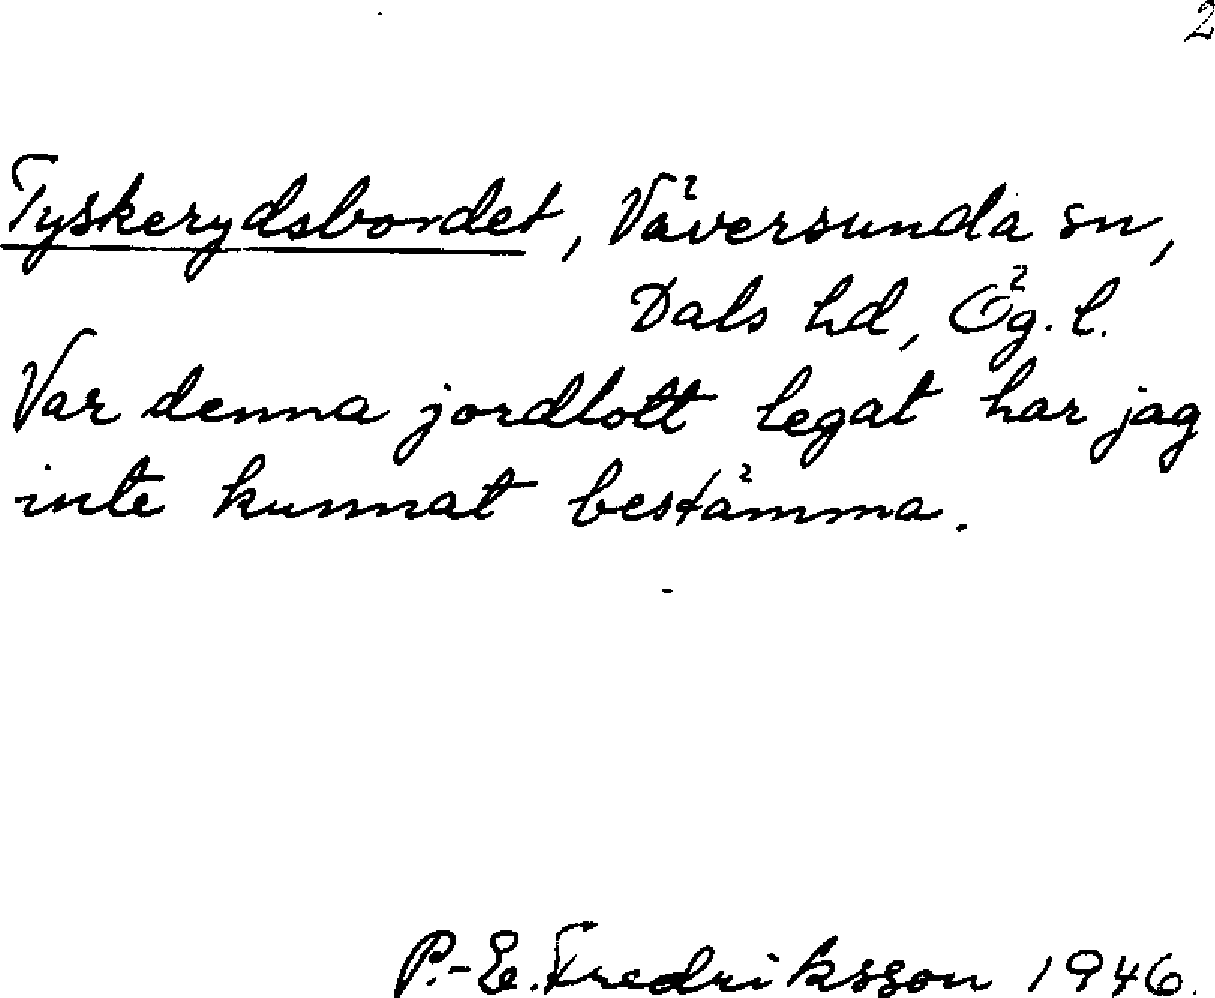 2
Tyskerydsbordet, Väversunda sn,
Dals hd, Ög. l.
Var denna jordlott legat har jag
inte kunnat bestämma.
P.-E. Fredriksson 1946.